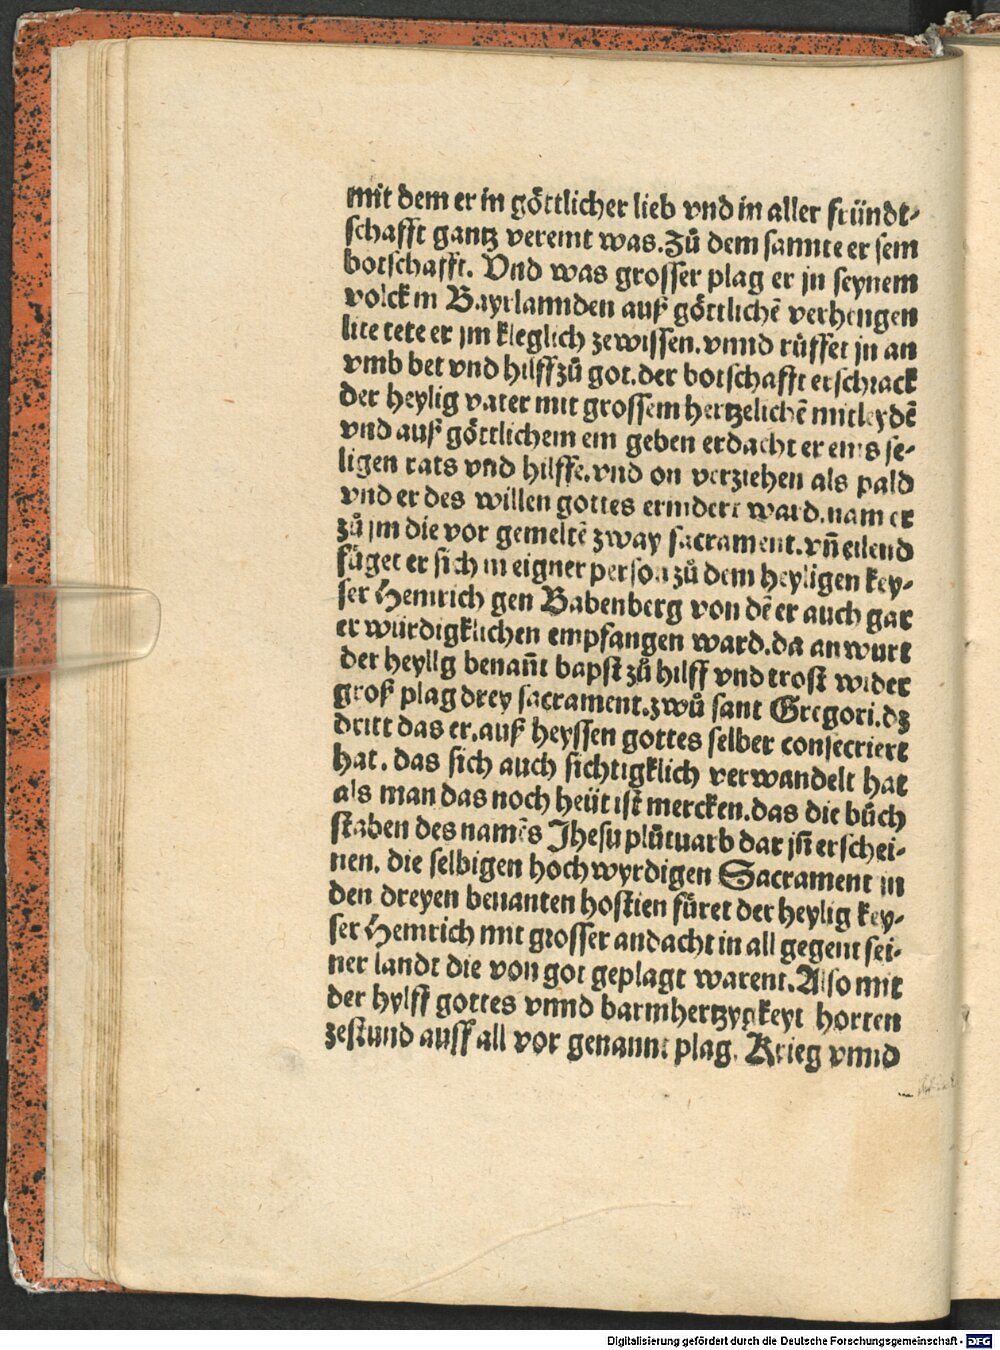 mit dem er in göttlicher lieb vnd in aller fründt-
schafft gantz vereint was. Zů dem sannte er sein
botschafft. Vnd was grosser plag er jn seynem
volck in Bayrlannden auß göttlichē verhengen
litte tete er jm kleglich zewissen. vnnd růffet jn an
vmb bet vnd hilff zů got. der botschafft erschrack
der heylig vater mit grossem hertzelichē mitleydē
vnd auß göttlichem ein geben erdacht er eins se-
ligen rats vnd hilffe. vnd on verziehen als pald
vnd er des willen gottes erindert ward. nam er
zů jm die vor gemeltē zway sacrament. vn̄ eilend
fůget er sich in eigner person zů dem heyligen key-
ser Heinrich gen Babenberg von dē er auch gar
er wurdigklichen empfangen ward. da anwurt
der heylig benan̄t bapst zů hilff vnd trost wider
groß plag drey sacrament. zwů sant Gregori. dz
dritt das er. auß heyssen gottes selber consecriert
hat. das sich auch sichtigklich verwandelt hat
als man das noch heüt ist mercken. das die bůch
staben des namēs Jhesu plůtuarb dar jn̄ erschei-
nen. die selbigen hochwyrdigen Sacrament in
den dreyen benanten hostien fůret der heylig key-
ser Heinrich mit grosser andacht in all gegent sei-
ner landt die von got geplagt warent. Also mit
der hylff gottes vnnd barmhertzygkeyt horten
zestund auff all vor genannt plag. Krieg vnnd
Digitalisierung gefördert durch die Deutsche Forschungsgemeinschaft - DFG